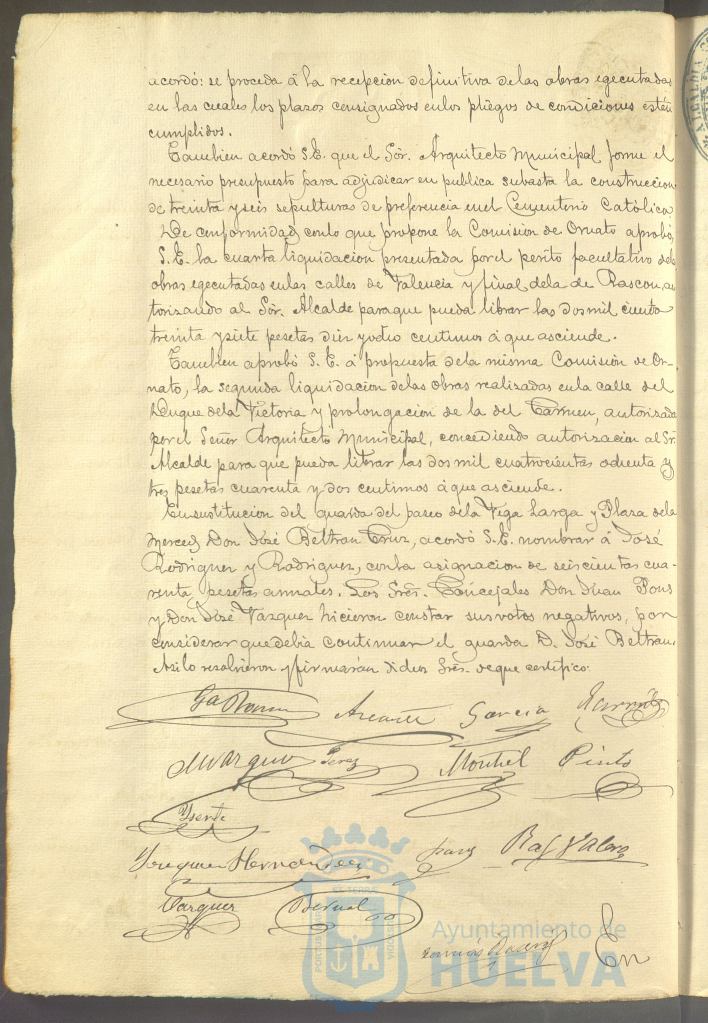 acordó: se proceda á la recepcion definitiva delas obras egecutadas
en las cuales los plazos consignados enlos pliegos de condiciones esten
cumplidos.
Tambien acordó S.E. que el Sór. Arquitecto Municipal forme el
necesario presupuesto para adjudicar en publica subasta la construccion
de treinta y seis sepulturas de preferencia enel Cementerio Católico
De conformidad conlo que propone la Comision de Ornato aprobó
S.E. la cuarta liquidacion presentada por el perito facultativo delas
obras egecutadas enlas calles de Valencia y final dela de Rascon, au
torizando al Sór. Alcalde paraque pueda librar las dos mil ciento
treinta y siete pesetas diez yocho centimos á que asciende.
Tambien aprobó S.E. á propuesta dela misma Comision de Or-
nato, la segunda liquidacion delas obras realizadas enla calle del
Duque dela Victoria y prolongacion de la del Carmen, autorizada
por el Señor Arquitecto Municipal, concediendo autorizacion al Sr.
Alcalde para que pueda librar las dos mil cuatrocientas ochenta y
tres pesetas cuarenta y dos centimos á que asciende.
En sustitucion del guarda del paseo dela Vega Larga y Plaza dela
Merced Don José Beltran Cruz, acordó S.E. nombrar á José
Rodriguez y Rodriguez, conla asignacion de seiscientas cua-
renta pesetas annales. Los Sres. Concejales Don Juan Pons
y Don José Vazquez hicieron constar susvotos negativos, por
considerar quedebia continuar el guarda D. José Beltran.
Asilo resolvieron y firmarán dichos Sres. deque certifico.
Garcia
Marquez Perez Montiel Pinto
Hernandez Pons
Vazquez Bernal
ALCALDIA
PORTUS MARIS ET TERRAE CUSTODIA
Ayuntamiento de
HUELVA